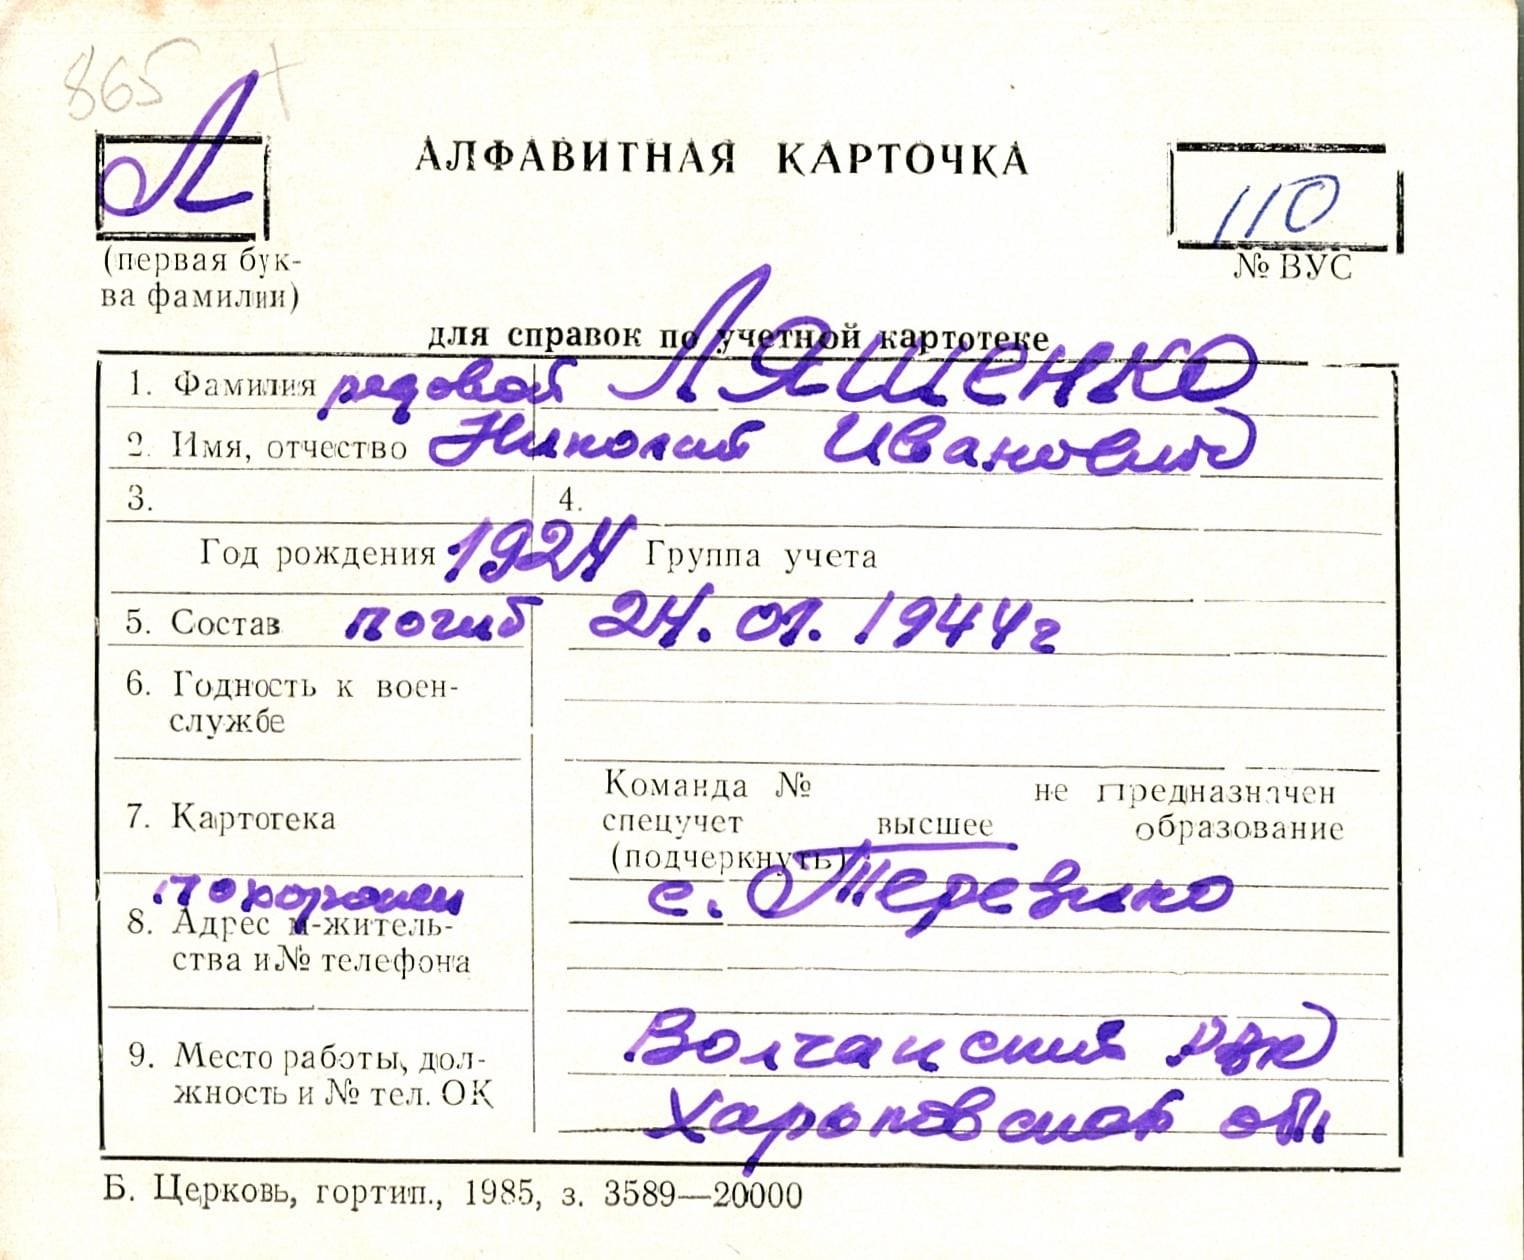 865 +
Л
АЛФАВИТНАЯ КАРТОЧКА
110
(первая бук-
ва фамилии)
№ ВУС
для справок по учетной картотеке
1. Фамилия рядовой Ляшенко
2. Имя, отчество Николай Иванович
3. 4.
Год рождения 1924 Группа учета
5. Состав погиб 24.01.1944г
6. Годность к воен-
службе
Команда № не предназначен
7. Картотека
спецучет высшее образование
(подчеркнуть)
похоронен с. Терезино
8. Адрес м-житель-
ства и № телефона
Волчанский РВК
9. Место работы, дол-
жность и № тел. ОК
Харьковской обл
Б. Церковь, гортип., 1985, з. 3589—20000